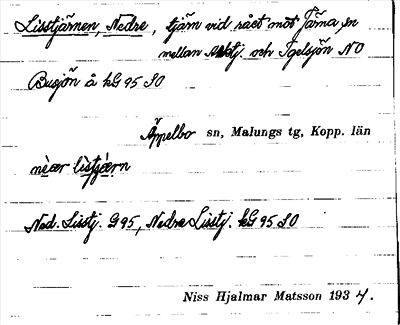 Lisstjärnen, Nedre, tjärn vid rået mot Järna sn
mellan och Igelsjön NO
Busjön å kG 95 SO
Äppelbo sn, Malungs tg, Kopp. län
nèær lìstjæ̣rn
Ned. Lisstj. G 95, Nedre Lisstj. kG 95 SO
Niss Hjalmar Matsson 1934.